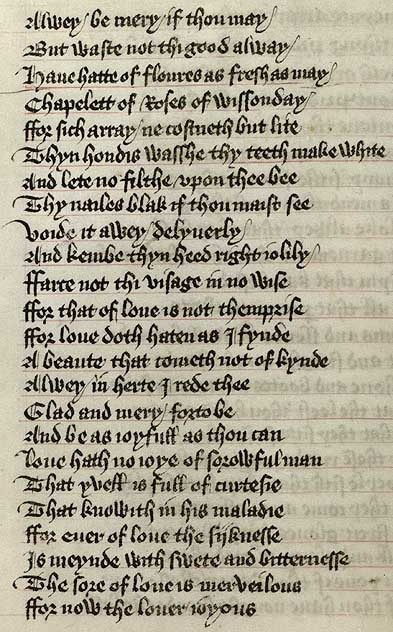 Alwey / be mery / if thou may /
But waste not thi good alway /
Haue hatte of floures as fresh as may /
Chapelett of Roses of wissonday /
ffor sich array / ne costneth but lite
Thyn hondis wasshe thy teeth make white
And lete no filthe vpon thee bee
Thy nailes blak if thou maist see
Voide it awey / delyuerly /
And kembe thyn heed right iolily /
ffarce not thi visage in no wise
ffor that of loue is not themprise
ffor loue doth haten as I fynde
A beaute that cometh not of kynde
Alwey in herte I rede thee
Glad and mery / forto be
And be as ioyfull as thou can
Loue hath no ioye of sorowful man
That yuell is full of curtesie
That knowith in his maladie
ffor euer of loue the sijknesse
Is meynde with swete and bitternesse
The sore of loue is merveilous
ffor now the louer ioyous